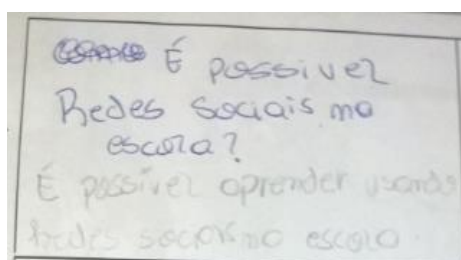 É possivel
Redes sociais na
escola?
É possível aprender usando
redes sociais na escola.